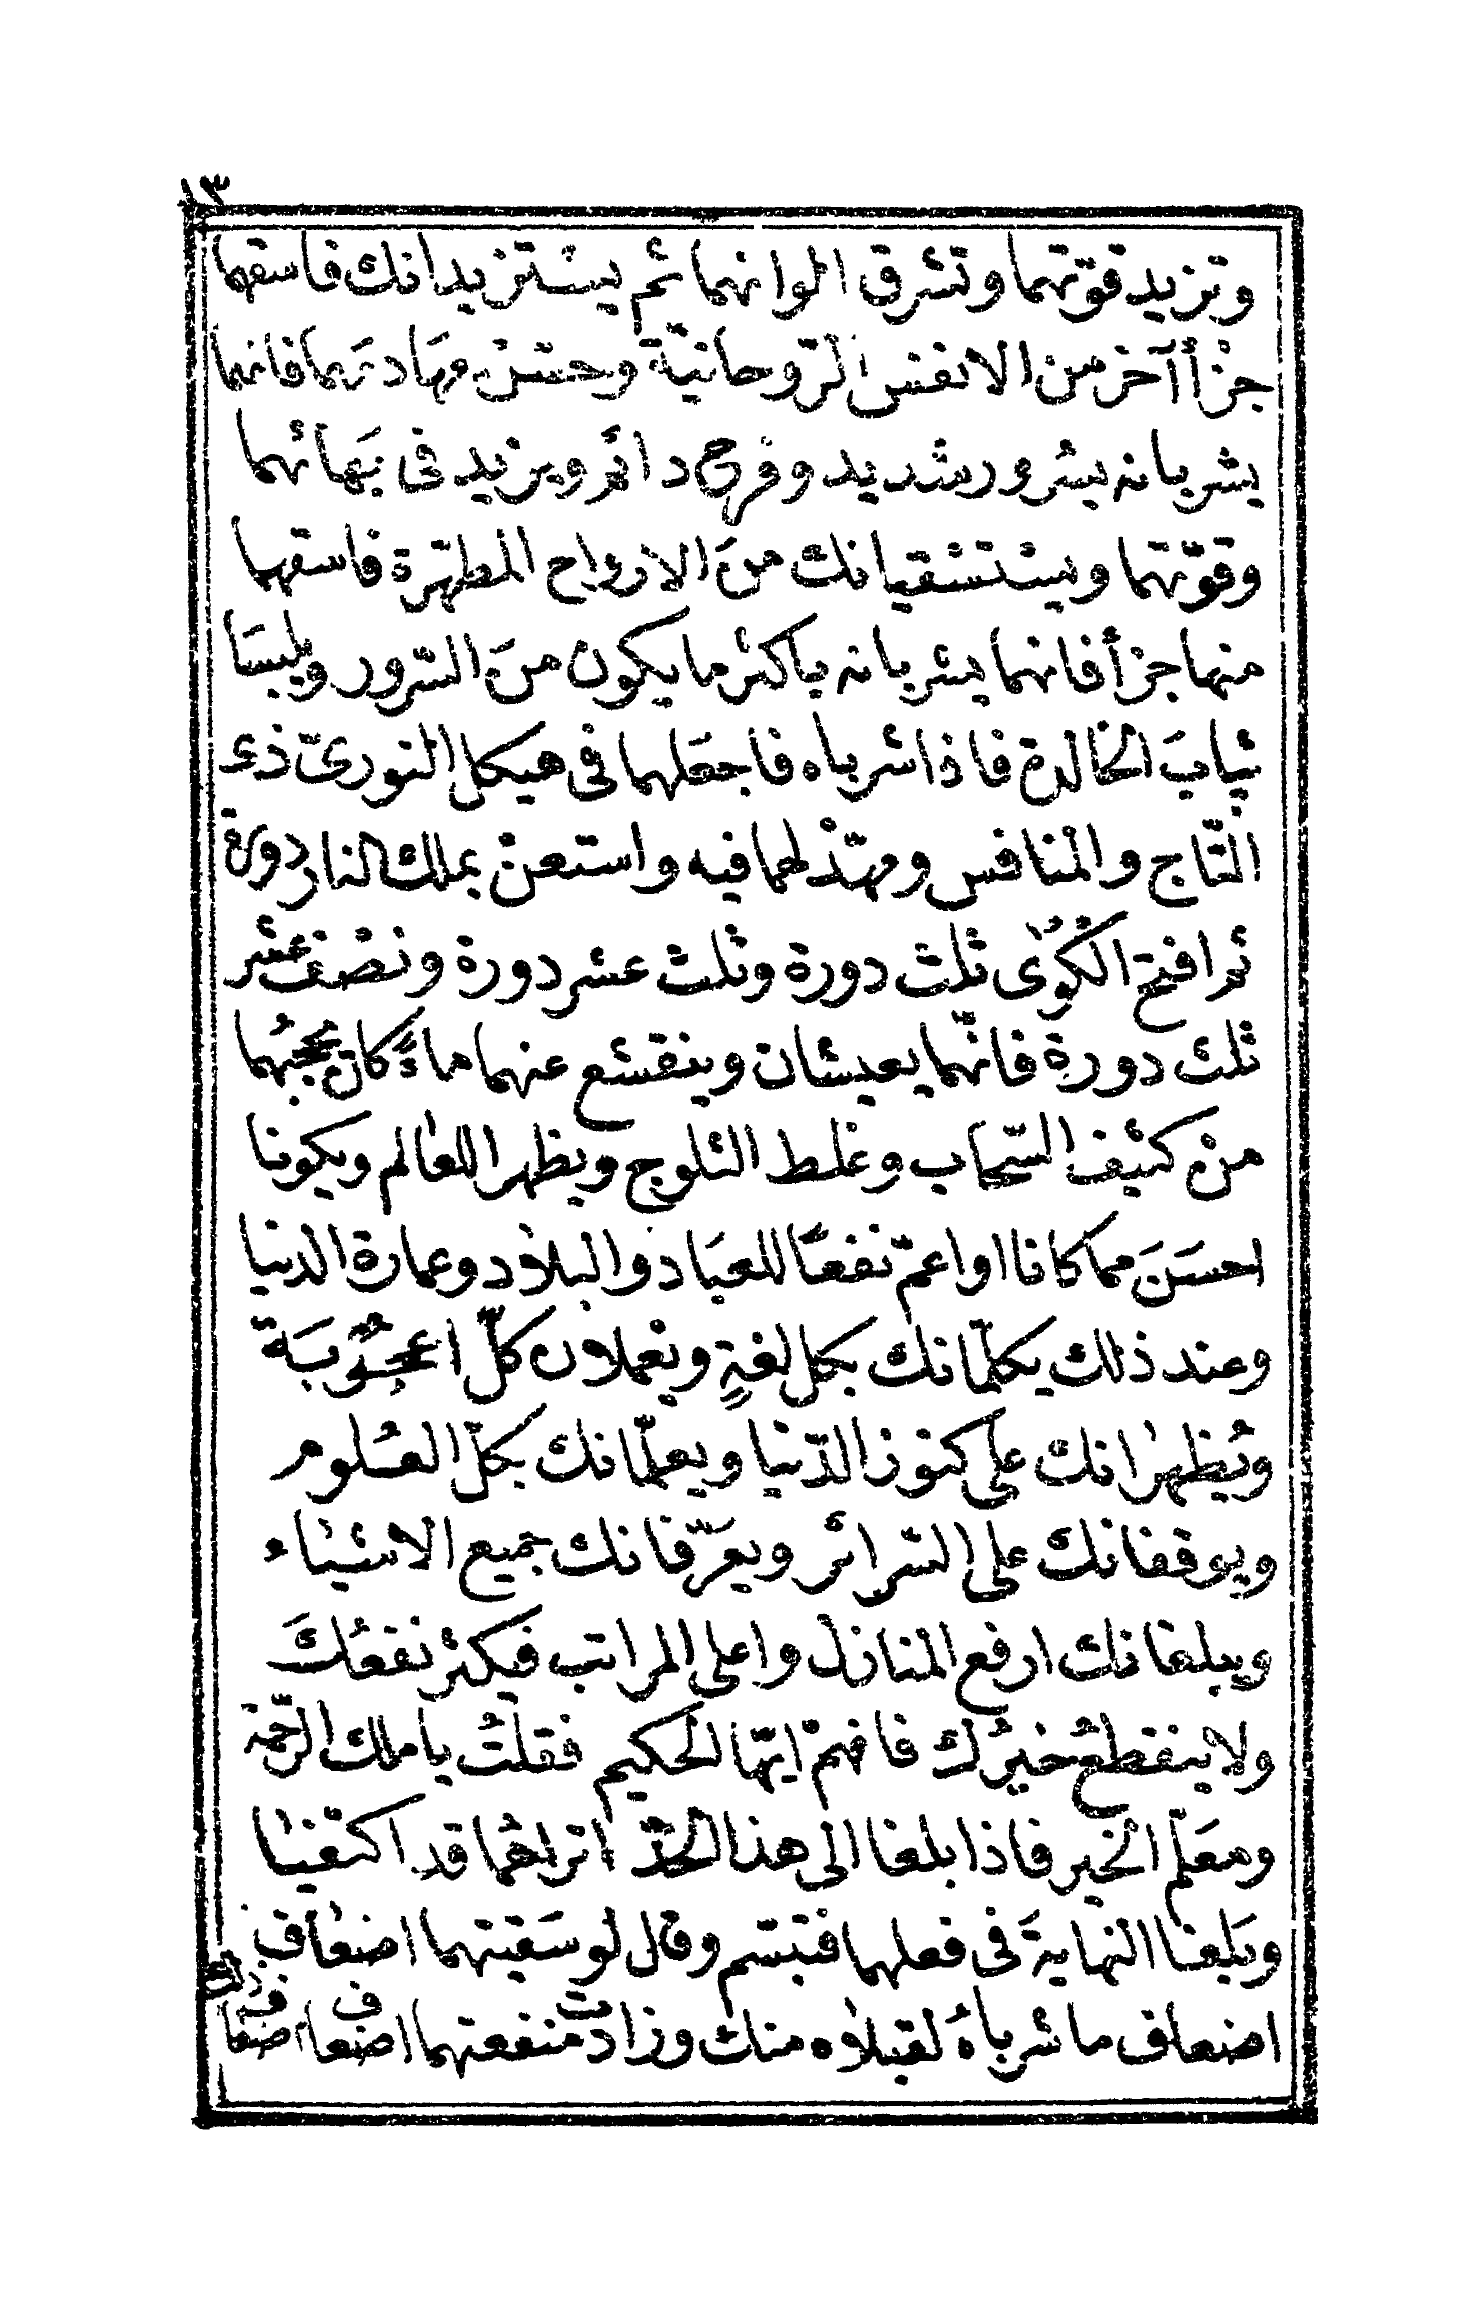 ١٣
وتزيد قوّتهما وتشرق الوانهما ثم يستزيدانك فاسقهما
جزأ آخر من الانفس الرّوحانيّة وحسّن مهادتهما فانهما
يشربانه بسرور شديد وفرح دائم ويزيد فى بَهائهما
وقوّتهما ويستسقيانك منَ الارواح المطهّرة فاسقهما
منها جزأ فانهما يشربانه باكثر ما يكون منَ السّرور ويلبسَا
ثيابَ الخالدة فاذا شرباه فاجعَلهما فى هيكل النورىّ ذى
التّاج والمنافس ومهّدْ لهما فيه واستعنْ بملك النار دورة
ثم افتح الكُوٰى ثلث دورة وثلث عشر دورة ونصْف عشر
ثلث دورة فانّهما يعيشان وينقشع عنهما ماءً كان يحجبُهما
منْ كثيف السّحاب وغلط الثلوج ويظهرا للعالم ويكونا
احسَنَ مما كانا واعمّ نفعًا للعبَاد والبلاد وعمارة الدنيا
وعند ذلك يكلّمانك بكل لغةٍ ويعملان كلّ اعجُوبَة
ويُظهرانك على كنوز الدّنيا ويعلّمانك بكلّ العُلوم
ويوقفانك على السّرائر ويعَرّفانك جميع الاشياء
ويبلغانك ارفع المنازل واعلى المراتب فيكثر نفعُكَ
ولا ينقطعُ خيرُك فافهمْ ايّها الحكيم فقلتُ يا ملك الرّحمة
ومعَلّم الخير فاذا بلغا الى هذا الحدّ اتراهُما قد اكتفيا
وبَلغا النهاية فى فعلهما فتبسّم وقال لو سَقيتهما اضعاف
اضعاف ما شرباهُ لقبلاه منك وزادت منفعتهما اضعاف اضعاف ذلك